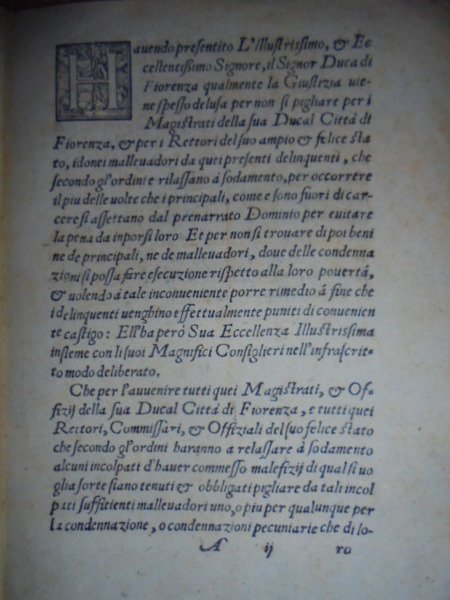 HAuendo presentito L'Illustrissimo, & Ec
cellentißimo Signore, il Signor Duca di
Fiorenza qualmente la Giustizia uie-
ne spesso delusa per non si pigliare per i
Magistrati della sua Ducal Città di
Fiorenza, & per i Rettori del suo ampio & felice sta
to, idonei malleuadori da quei presenti delinquenti, che
secondo gl'ordini e rilassano à sodamento, per occorrere
il piu delle uolte che i principali, come e sono fuori di car-
cere si assettano dal prenarrato Dominio per euitare
la pena da inporsi loro Et per non si trouare di poi beni
ne de principali, ne de malleuadori, doue delle condenna
zioni si possa fare esecuzione rispetto alla loro pouertà,
& uolendo à tale inconueniente porre rimedio à fine che
i delinquenti uenghino effettualmente puniti di conuenien
te castigo: Ell'ha però Sua Eccellenza Illustrissima
insieme con li suoi Magnifici Consiglieri nell'infrascrit-
to modo deliberato.
Che per l'auuenire tutti quei Magistrati, & Of-
fizij della sua Ducal Città di Fiorenza, e tutti quei
Rettori, Commissari, & Offiziali del suo felice stato
che secondo gl'ordini haranno a relassare à sodamento
alcuni incolpati d'hauer commesso malefizij di qual si uo
glia sorte siano tenuti & obbligati pigliare da tali incol
pati suffitienti malleuadori uno, o piu per qualunque per
la condennazione, o condennazioni pecuniarie che di lo-
A ij ro